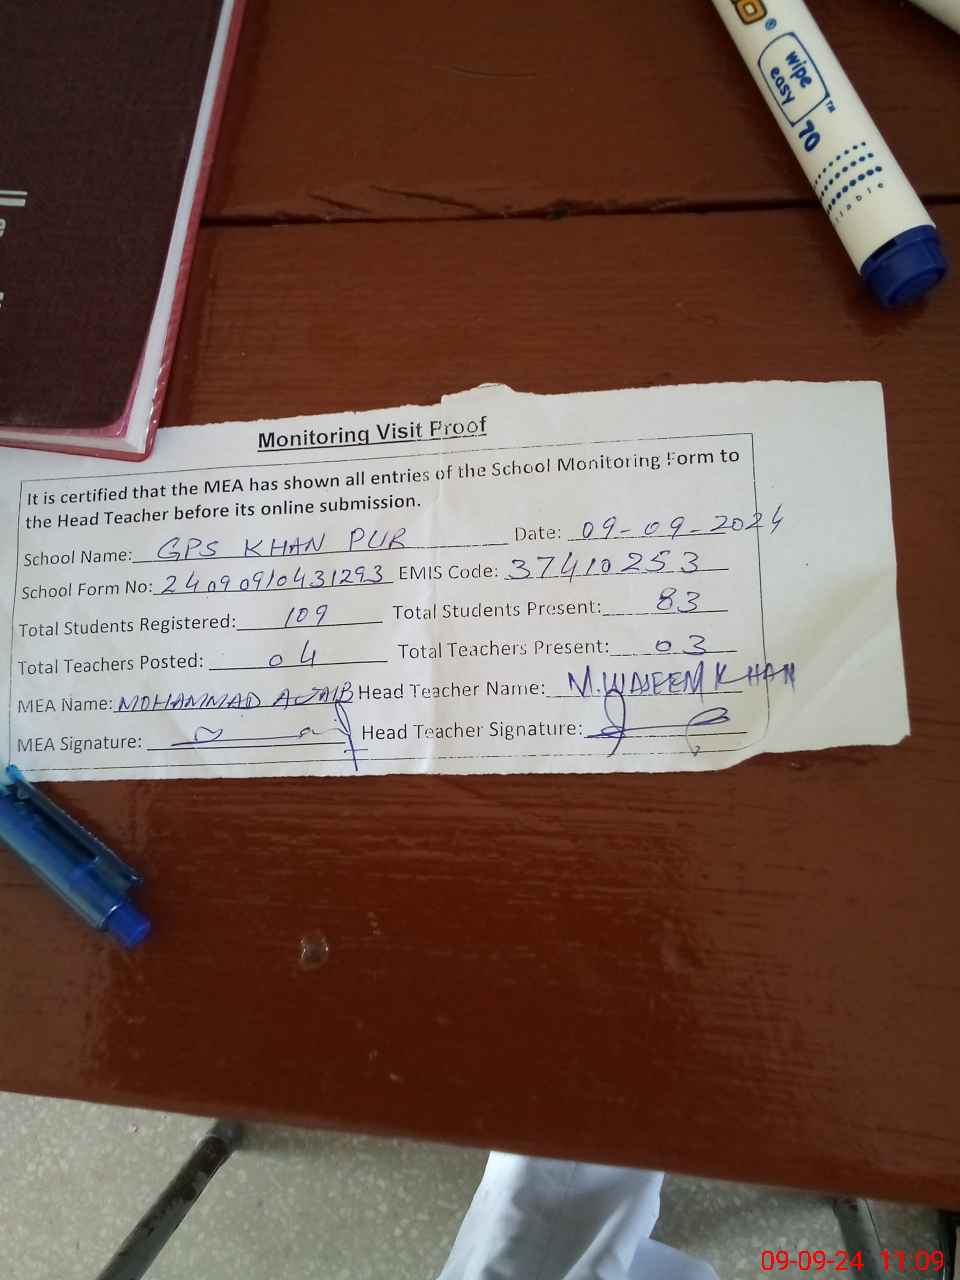 wipe
easy
TM
70
Monitoring Visit Proof
It is certified that the MEA has shown all entries of the School Monitoring Form to
the Head Teacher before its online submission.
School Name: GPS KHAN PUR Date: 09-09-2024
School Form No: 24090910431293 EMIS Code: 37410253
Total Students Registered: 109 Total Students Present: 83
Total Teachers Posted: 04 Total Teachers Present: 03
MEA Name: MOHAMMAD Head Teacher Name: M.WASEEM KHAN
MEA Signature: Head Teacher Signature:
09-09-24 11:09